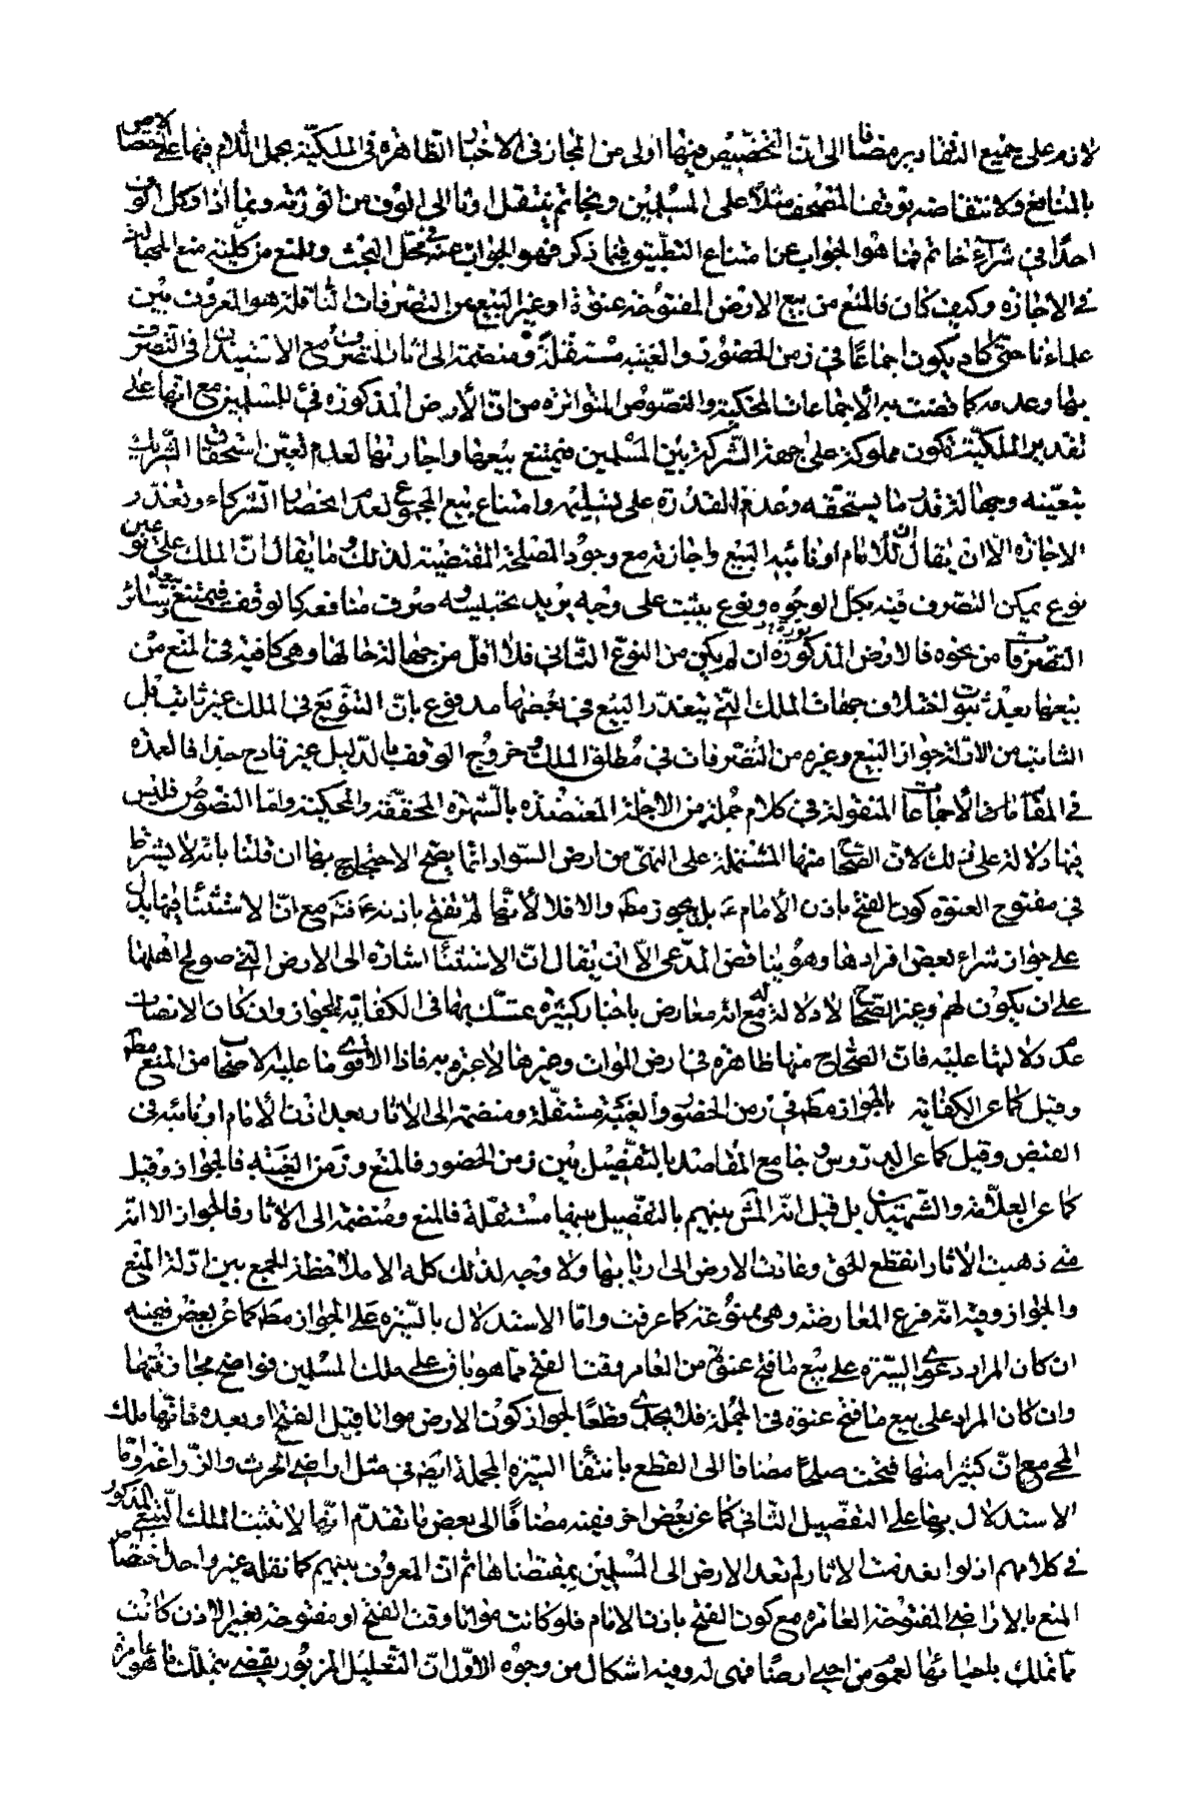 لازم على جميع التقادير مضافا الى ان التخصيص فيها اولى من المجاز في الاخبار الظاهرة في الملكيّة بحمل اللام فيها على الاختصاص
بالمنافع ولانتقاضه بوقف المصحف مثلا على المسلمين وبخاتم ينتقل ارثا الى الوقف من الورثة وبما اذا وكل الوارث
احدا في شراء خاتم فما هو الجواب عن امتناع التطبيق فيما ذكر فهو الجواب عنه في محل البحث وللمنع من كليته منع المجهالة
في الاجازة وكيف كان فالمنع من بيع الارض المفتوحة عنوة او غير البيع من التصرفات الناقلة هو المعروف بين
علماءنا حتى كاد يكون اجماعا في زمن الحضور والغيبة مستقلة ومنضمة الى اثار المتصرف مع الاستبداد في التصرف
بها وعدمه كما قضت به الاجماعات المحكية والنصوص المتواترة من ان الأرض المذكورة فئ للمسلمين مع انها على
تقدير الملكية تكون مملوكة على جهة الشركة بين المسلمين فيمتنع بيعها واجارتها لعدم تعين استحقاق الشريك
بتعينه وجهالة قدر ما يستحقه وعدم القدرة على تسليمه وامتناع بيع المجموع لعدم انحصار الشركاء وتعذر
الاجازة الا ان يقال ان للامام او نائبه البيع واجازته مع وجود المصلحة المقتضية لذلك وما يقال ان الملك على نوعين
نوع يمكن التصرف فيه بكل الوجوه ونوع يثبت على وجه يريد بتحبيسه صرف منافعه كالوقف فيمتنع بيعه وسائر
التصرفات من نحوه فالارض المذكورة ان لم يكن من النوع الثاني فلا اقل من جهالة حالها وهي كافية في المنع من
بيعها بعد ثبوت اختلاف جهات الملك التي يتعذر البيع في بعضها مدفوع بان التنويع في الملك غير ثابت بل
الثابت من الادلة جواز البيع وغيره من التصرفات في مطلق الملك وخروج الوقف بالدليل غير قادح جدا فالعمدة
في المقامات الأجماعات المنقولة في كلام جملة من الاجلة المعتضدة بالشهرة المحققة والمحكية واما النصوص فليس
فيها دلالة على ذلك لان الصحاح منها المشتملة على النهي من ارض السواد انما يصح الاحتجاج بها ان قلنا بانه لا يشترط
في مفتوح العنوة كون الفتح باذن الأمام ع بل يجوز مط والا فلا لأنها لم تفتح باذنه ع فتم مع ان الاستثناء فيها يدل
على جواز شراء بعض افرادها وهو يناقض المدعى الا ان يقال ان الاستثناء اشارة الى الارض التي صولح اهلها
على ان يكون لهم وغير الصحاح لا دلالة له مع انه معارض باخبار كثيرة تمسك بها في الكفاية للجواز وان كان الانصاف
عدم دلالتها عليه فان الصحاح منها ظاهرة في ارض الموات وغيرها لا عبرة به فاذا الاقوى ما عليه الاصحاب من المنع مط
وقيل كما عن الكفاية بالجواز مط في زمن الحضور والغيبة مستقلة ومنضمة الى الاثار بعد اذن الأمام او نائبه في
القبض وقيل كما عن الدروس وجامع المقاصد بالتفصيل بين زمن الحضور فالمنع وزمن الغيبة فالجواز وقيل
كما عن العلامة والشهيدين بل قيل انه المش بينهم بالتفصيل بيعها مستقلة فالمنع ومنضمة الى الاثار فالجواز الا انه
متى ذهبت الاثار انقطع الحق وعادت الارض الى اربابها ولا وجه لذلك كله الا ملاحظة الجمع بين ادلة المنع
والجواز وفيه انه فرع المعارضة وهي ممنوعة كما عرفت واما الاستدلال بالسيرة على الجواز مط كما عن بعض ففيه
ان كان المراد دعوى السيرة على بيع ما فتح عنوة من العامر وقت الفتح مما هو باق على ملك المسلمين فواضح مجازفتها
وان كان المراد على بيع ما فتح عنوة في الجملة فلا يجدي قطعا لجواز كون الارض مواتا قبل الفتح او بعده فانها ملك
المحيي مع ان كثيرا منها فتحت صلحا مضافا الى القطع بانتفاء السيرة المجملة ايضا في مثل اراضي الحرث والزراعة واما
الاستدلال بها على التفصيل الثاني كما عن بعض اخر ففيه مضافا الى بعض ما تقدم انها لا تثبت الملك التبعي المذكور
في كلامهم اذ لو انعدمت الاثار لم تعد الارض الى المسلمين بمقتضاها ثم ان المعروف بينهم كما نقله غير واحد اختصاص
المنع بالاراضي المفتوحة العامرة مع كون الفتح باذن الامام فلو كانت مواتا وقت الفتح او مفتوحة بغير الاذن كانت
مما تملك باحيائها لعموم من احيى ارضا فهي له وفيه اشكال من وجوه الأول ان التعليل المزبور يقضي بتملك ما هو عامرة